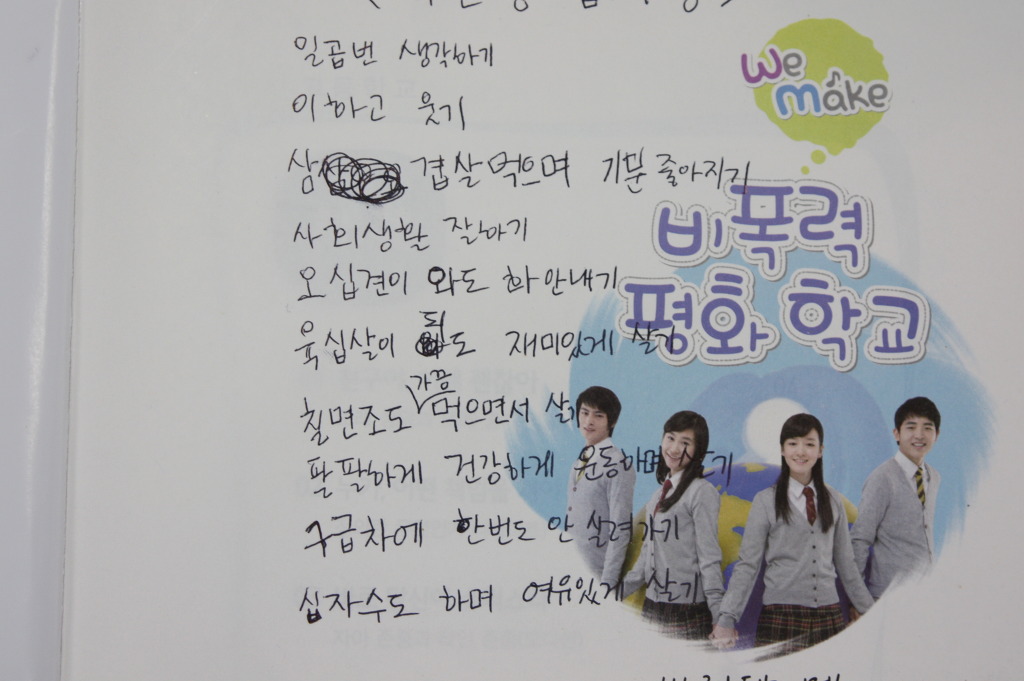 일곱번 생각하기
이하고 웃기
삼겹살먹으며 기분 좋아지기
사회생활 잘하기
오십견이 와도 화 안내기
육십살이 되도 재미있게 살기
칠면조도 가끔 먹으면서 살기
팔팔하게 건강하게 운동하며 살기
구급차에 한번도 안 실려가기
십자수도 하며 여유있게 살기
We make
비폭력
평화 학교